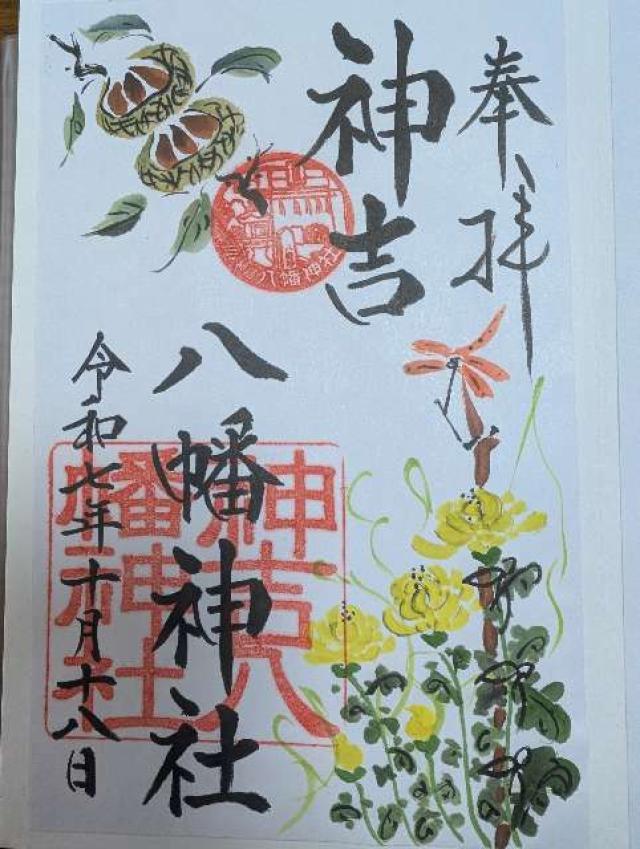 奉拝
神吉
八幡神社
令和七年十月十八日
八幡神社
神吉八
幡神社